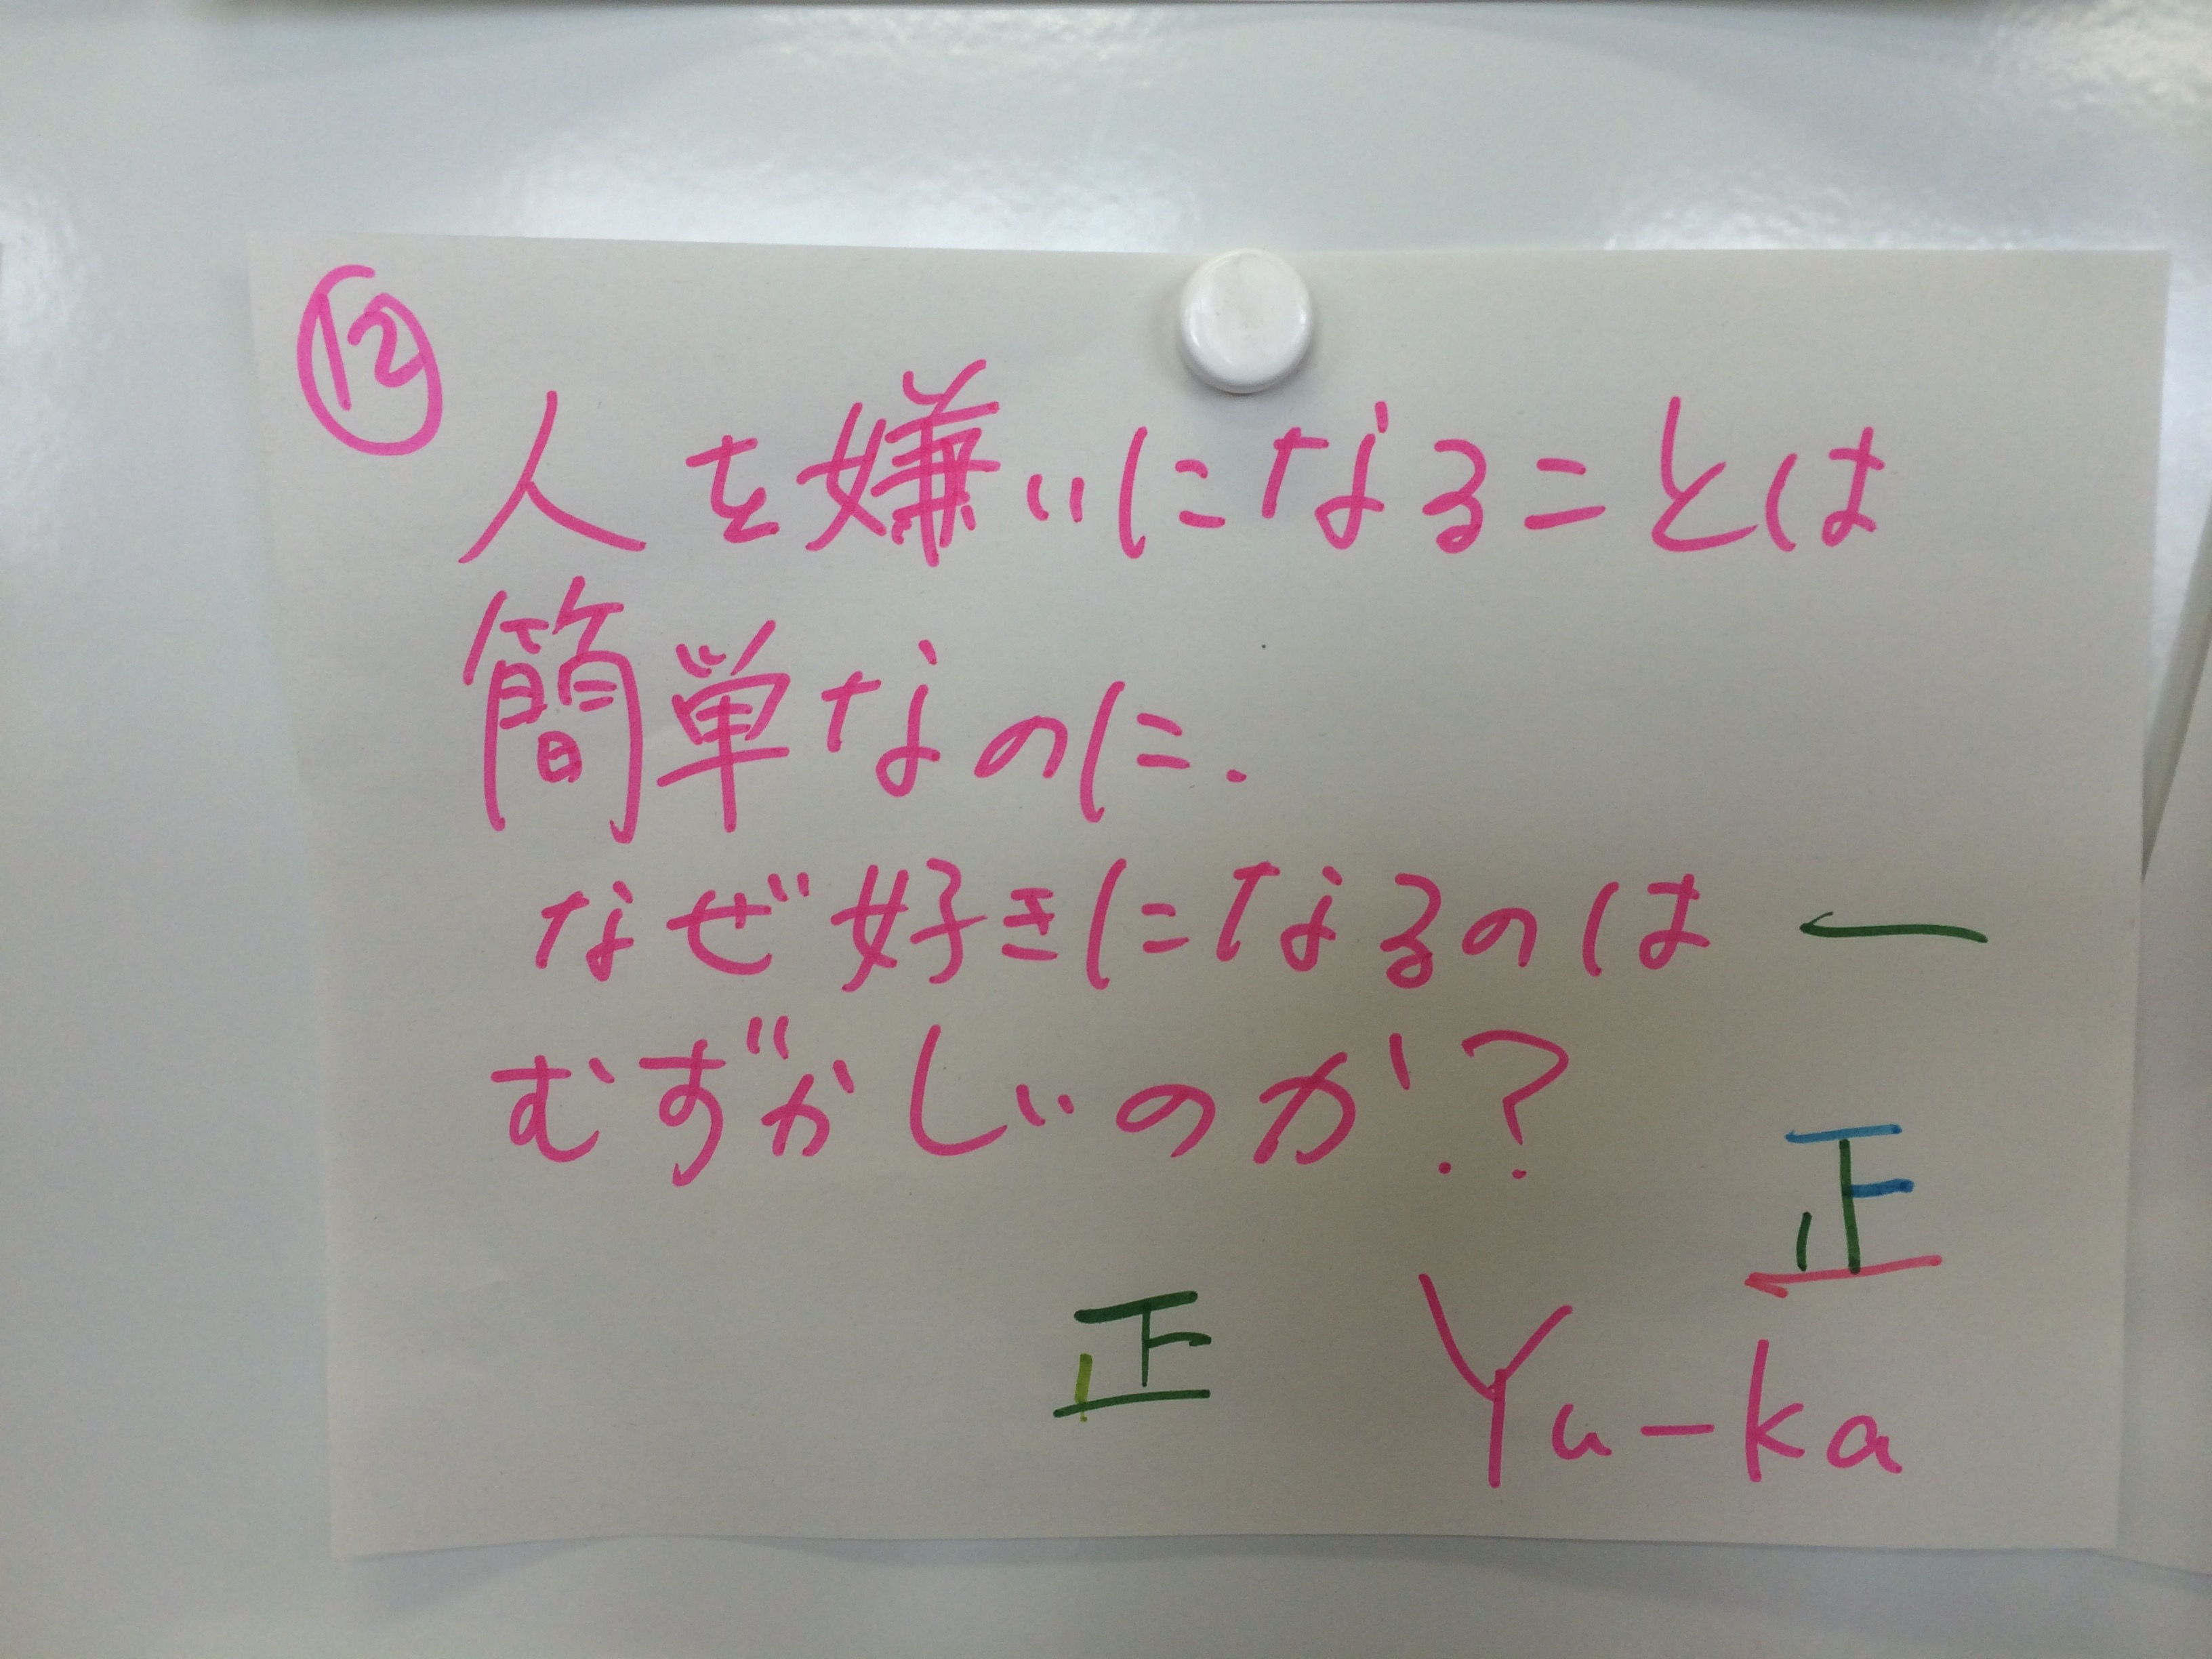 ⑫
人を嫌いになることは
簡単なのに.
なぜ好きになるのは
むずかしいのか？
一
正
正
Yu-ka